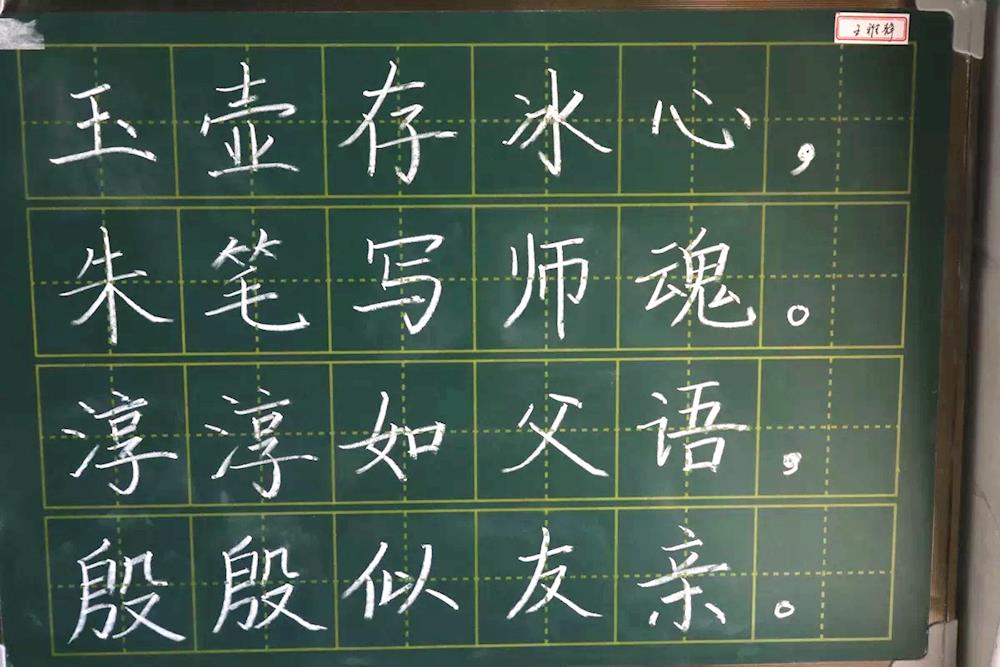 王雅静
玉壶存冰心，
朱笔写师魂。
淳淳如父语，
殷殷似友亲。